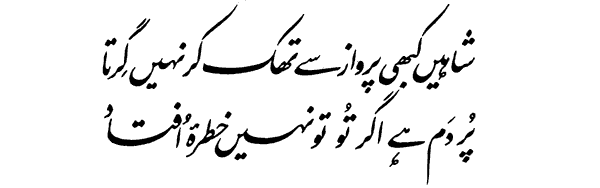 شاہیں کبھی پرواز سے تھک کر نہیں گِرتا
پُر دَم ہے اگر تُو تو نہیں خطرۂ اُفتاد